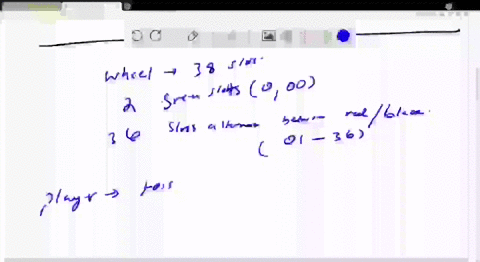 wheel → 38 slots.
2 green slots (0, 00)
36 slots alternate between red/black.
( 01 – 36)
player →